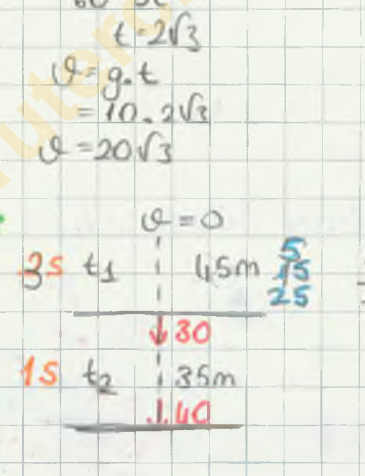 t=2√3
ϑ=g.t
=10.2√3
ϑ=20√3
ϑ=0
3s t₁ 45m 5
15
25
↓30
1s t₂ 35m
↓40